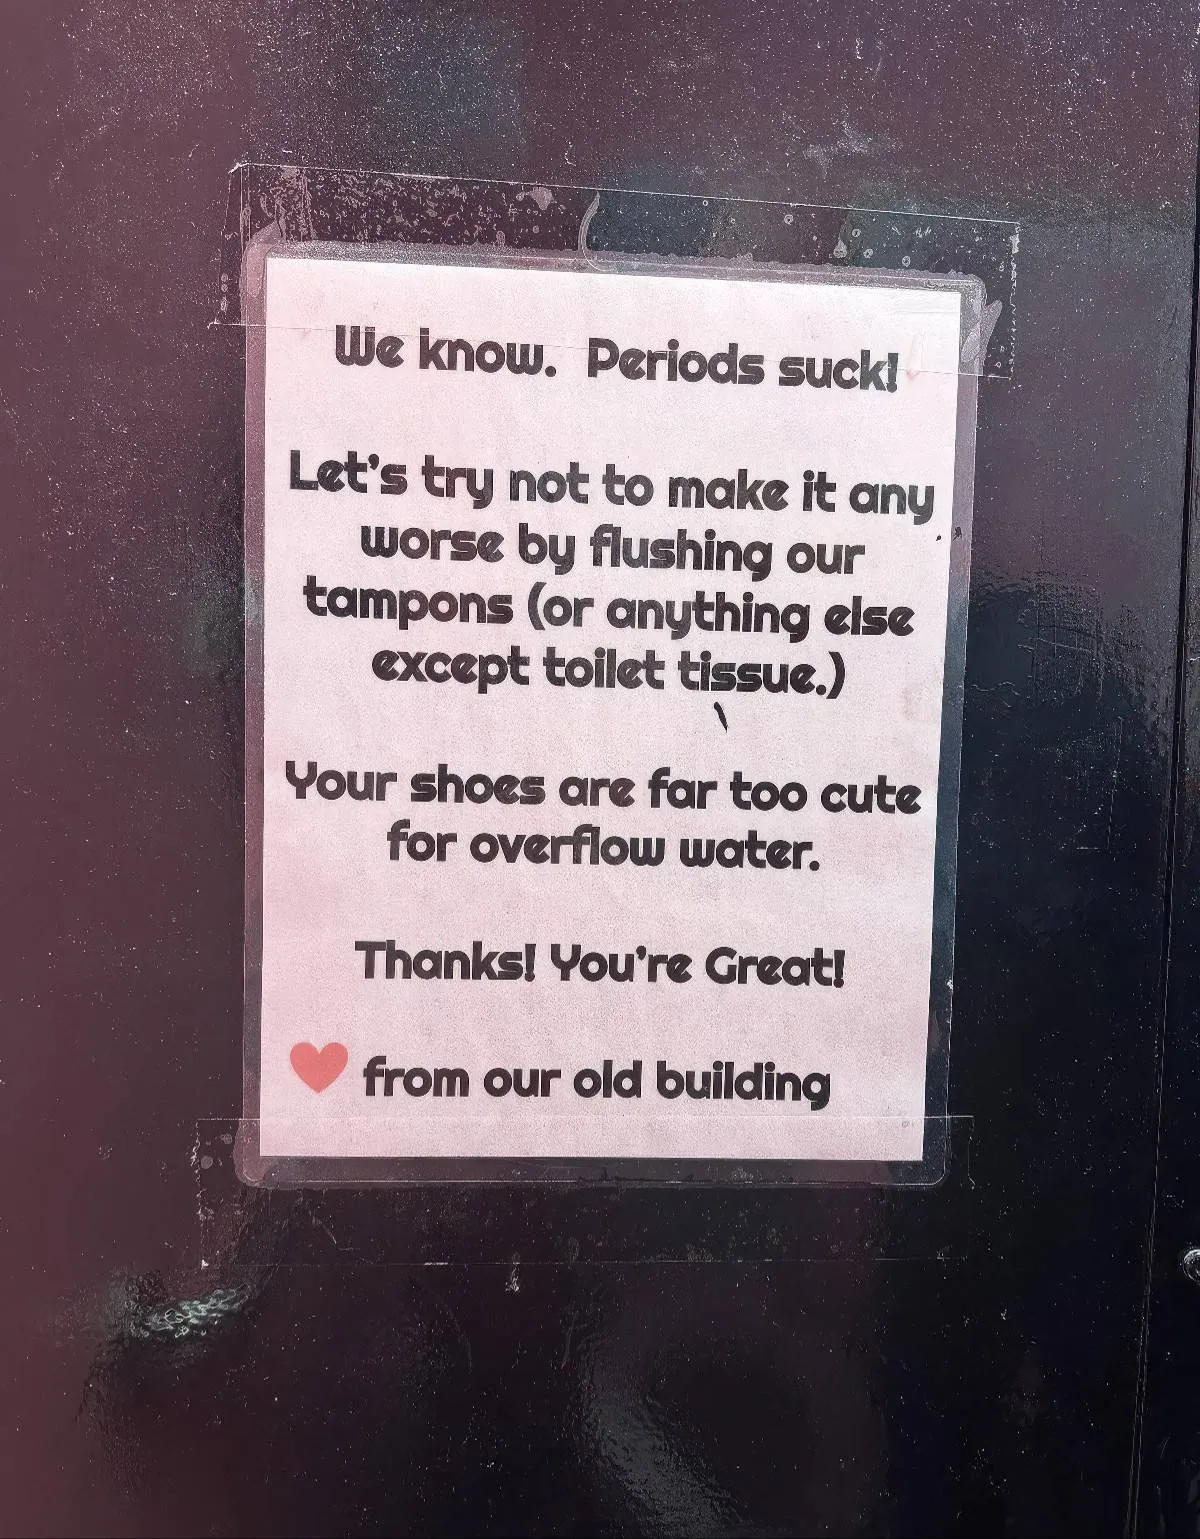 We know. Periods suck!
Let's try not to make it any
worse by flushing our
tampons (or anything else
except toilet tissue.)
Your shoes are far too cute
for overflow water.
Thanks! You're Great!
from our old building